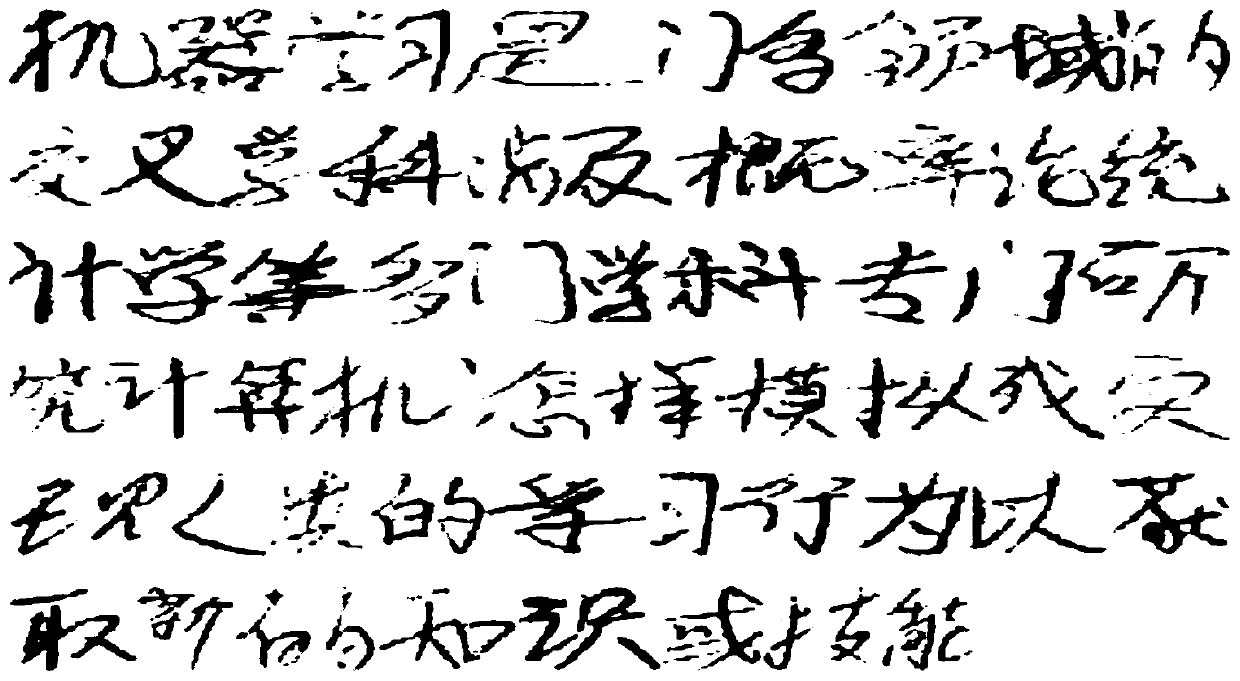 机器学习是一门多领域的
交叉学科涉及概率论统
计学等多门学科专门研
究计算机怎样模拟或实
现人类的学习行为以获
取新的知识或技能